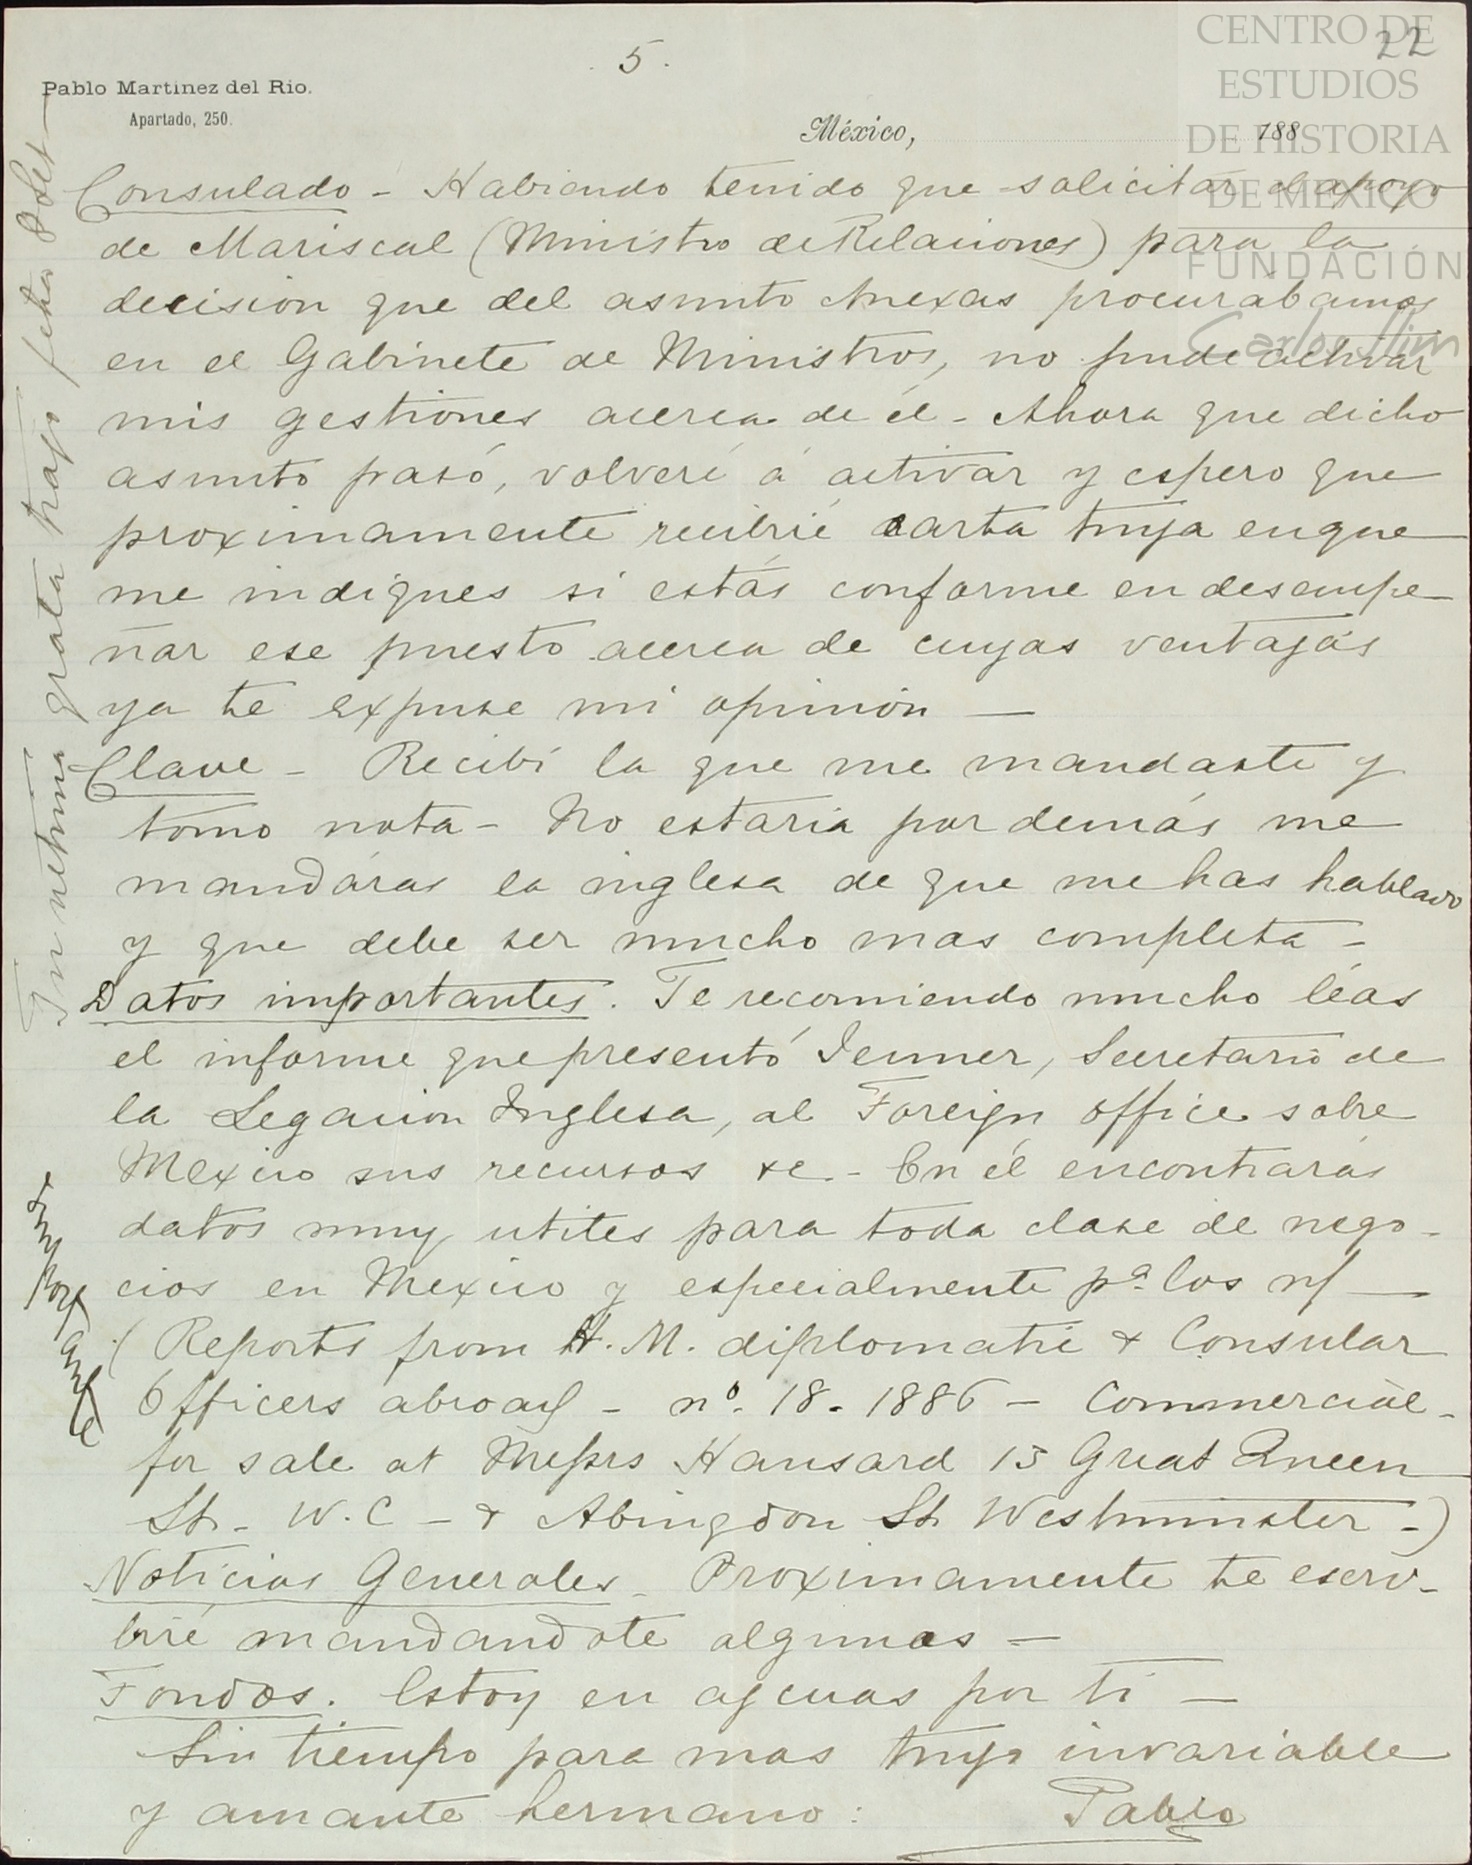 5.
22
Pablo Martinez del Rio.
Apartado, 250.
México, 188
CENTRO DE
ESTUDIOS
DE HISTORIA
DE MÉXICO
FUNDACIÓN
Carlos Slim
Consulado - Habiendo tenido que solicitar el apoyo
de Mariscal (Ministro de Relaciones) para la
decision que del asunto Anexas procurabamos
en el Gabinete de Ministros, no pude activar
mis gestiones acerca de él - Ahora que dicho
asunto pasó, volveré á activar y espero que
proximamente recibiré carta tuya en que
me indiques si estás conforme en desempe-
ñar ese puesto acerca de cuyas ventajas
ya te expuse mi opinión —
Clave - Recibí la que me mandaste y
tomo nota - No estaria por demás me
mandáras la inglesa de que me has hablado
y que debe ser mucho mas completa -
Datos importantes. Te recomiendo mucho léas
el informe que presentó Jenner, Secretario de
la Legacion Inglesa, al Foreign office sobre
Mexico sus recursos &c. - En él encontrarás
datos muy utiles para toda clase de nego-
cios en Mexico y especialmente pª los n/ —
(Reports from H. M. diplomatic & Consular
Officers abroad - nº. 18. 1886 - Commercial -
for sale at Messrs Hansard 13 Great Queen
St. W. C - & Abingdon St. Westminster -)
Noticias Generales - Proximamente te escri-
biré mandandote algunas —
Fondos. Estoy en agcuas por ti —
Sin tiempo para mas tuyo invariable
y amante hermano:
Pablo
Importante
Tu netima grata trajo fecha